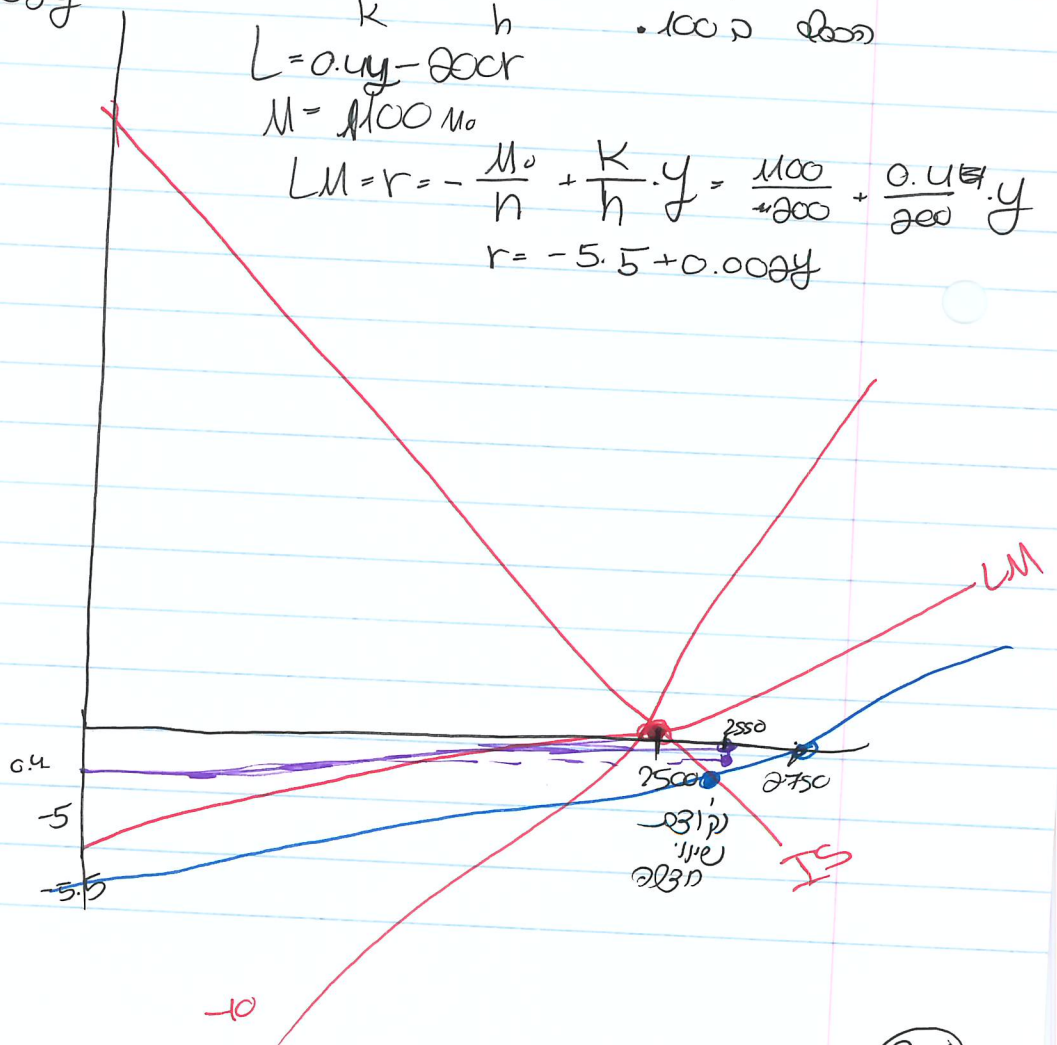 k h
.100 ב
L=0.4y-200r
M= 1100 M₀
LM=r= - M₀/h + k/h · y = 1100/-200 + 0.4/200 · y
r= -5.5+0.002y
LM
2550
0.4
2500
2750
-5
נקודת
שיווי
IS
-5.5
-10